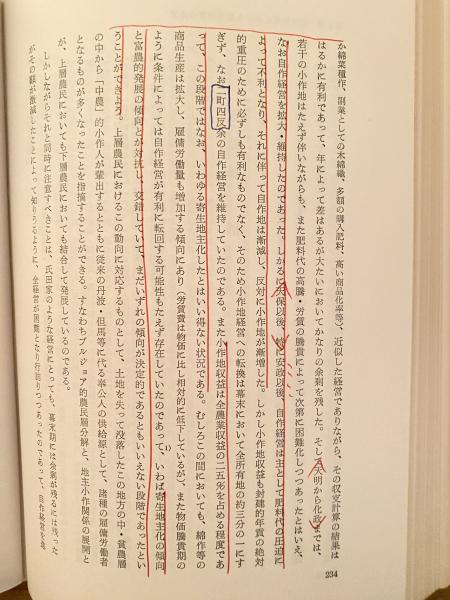 か綿菜種作、副業としての木綿織、多額の購入肥料、高い商品化率等)、近似した経営でありながら、その収支計算の結果は
はるかに有利であって、年によって差はあるが大たいにおいてかなりの余剰を残した。そして天明から化政までは、
若干の小作地はたえず伴いながらも、また肥料代の高騰・労賃の騰貴によって次第に困難化しつつあったとはいえ、
なお自作経営を拡大・維持したのであった。しかるに天保以後、特に安政以後、自作経営は主として肥料代の圧迫に
よって不利となり、それに伴って自作地は漸減し、反対に小作地が漸増した。しかし小作地収益も封建的年貢の絶対
的重圧のために必ずしも有利なものでなく、そのため小作地経営への転換は幕末において全所有地の約三分の一にす
ぎず、なお一町四反余の自作経営を維持していたのである。また小作地収益は全農業収益の二五%を占める程度であ
って、この段階ではなお、いわゆる寄生地主化したとはいい得ない状況である。むしろこの間においても、綿作等の
商品生産は拡大し、雇傭労働量も増加する傾向にあり(労賃費は物価に比し相対的に低下しているが)、また物価騰貴期の
ように条件によっては自作経営が有利に転回する可能性もたえず存在していたのであって、いわば寄生地主化の傾向
と富農的発展の傾向とが対抗し、交錯していて、まだいずれの傾向が決定的であるともいいえない段階であったとい
うことができよう。上層農民におけるこの動向に対応するものとして、土地を失って没落したこの地方の中・貧農層
の中から「中農」的小作人が輩出するとともに従来の丹波・但馬等に代る奉公人の供給源として、諸種の雇傭労働者
となるものが多くなったことを指摘することができる。すなわちブルジョア的農民層分解と、地主小作関係の展開と
が、上層農民においても下層農民においても結合して発展しているのである。
しかしながらそれと同時に注意すべきことは、氏田家のような経営にとっても、幕末期には余剰が残るには残った
がその額が激減したことによって知りうるように、全経営が困難となり行詰りつつあったのであって、自作経営を急
234